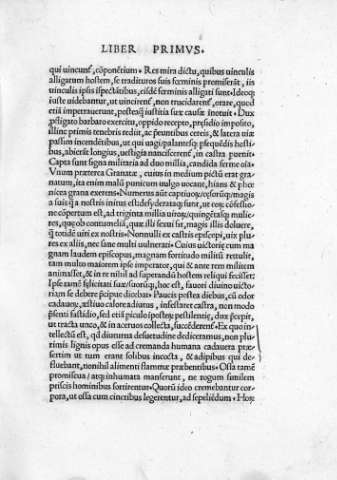 LIBER PRIMVS.
qui uincunt, cōponētium. Res mira dictu, quibus uinculis
alligatum hostem, se tradituros suis fœminis promiserāt, iis
uinculis ipsis ispectātibus, eisdē fœminis alligati sunt. Ideoq;
iuste uidebantur, ut uincirent, non trucidarent, orare, quod
etiā impetrauerunt, posteaq̃ iustitia suæ causæ inotuit. Dux
pstigato barbaro exercitu, oppido recepto, præsidio imposito,
illinc primis tenebris rediit, ac præuntibus cereis, & latera uiæ
passim incendētibus, ut qui uagi, palantesq; psequēdis hosti-
bus, abierāt longius, uestigia nanciscerent, in castra puenit.
Capta sunt signa militaria ad duo millia, candida ferme oīa.
Vnum præterea Granatæ, cuius in medium pictū erat gra-
natum, ita enim malū punicum uulgo uocant, hians & phœ
nicea grana exerens. Numerus aūt captiuorꝫ, cæsorūq; magis
a suis q̃ a nostris initus est. desyderata q; sunt, ut eorꝫ cōfessio-
ne cōpertum est, ad triginta millia uirorꝫ, quingētasq; mulie-
res, quas ob contumeliā, quæ illi sexui sit, magis illis doluere,
q̃ totidē uiri ex nostris. Nonnulli ex castris episcopi, uix plu-
res ex aliis, nec sane multi uulnerati. Cuius uictoriæ cum ma
gnam laudem episcopus, magnam fortitudo militū rettulit,
tam multo maiorem ipse imperator, qui & ante rem militem
animasset, & in re nihil ad superandū hostem reliqui fecisset:
Ipse tamē felicitati suæ, suorūq; hoc est, fauori diuino uicto-
riam se debere præcipue dicebat. Paucis postea diebus, cū odor
cadauerꝫ, æstiuo calore adiutus, infestaret castra, non modo
præsenti fastidio, sed etiā piculo ipostero pestilentiæ, dux præcepit,
ut tracta unco, & in aceruos collecta, succēderent. Ex quo in-
tellectū est, qd diuturna desuetudine dediceramus, non plu-
rimis lignis opus esse ad cremanda humana cadauera præ-
sertim ut tum erant solibus incocta, & adipibus qui de-
fluebant, nonnihil alimenti flammæ præbentibus. Ossa tamē
promiscua, atq; inhumata manserunt, ne rogum similem
priscis hominibus sortirentur. Quorū ideo cremebantur cor-
pora, ut ossa cum cineribus legerentur, ad sepeliēdum. Hos